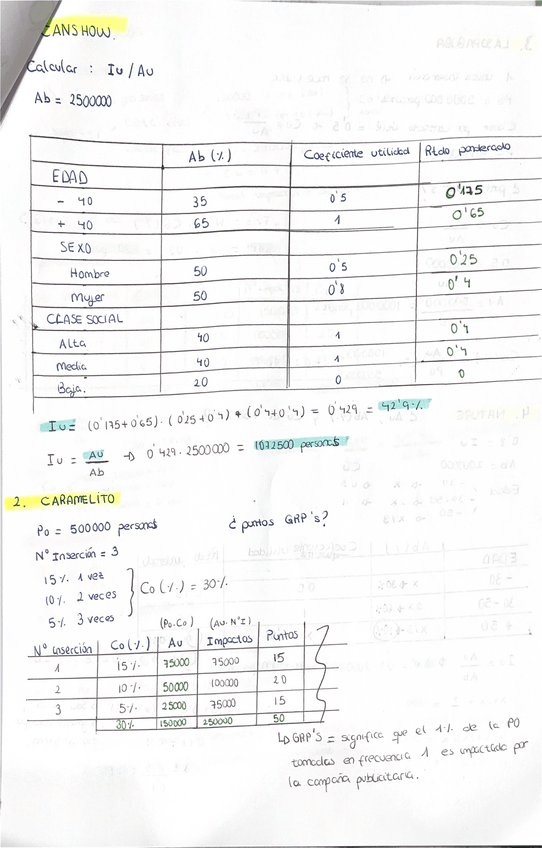 ZANSHOW.
Calcular : Iu / Au
Ab = 2500000
Ab (%) Coeficiente utilidad Rtdo ponderado
EDAD
- 40 35 0'5 0'175
+ 40 65 1 0'65
SEXO
Hombre 50 0'5 0'25
Mujer 50 0'8 0'4
CLASE SOCIAL
Alta 40 1 0'4
Media 40 1 0'4
Baja. 20 0 0
Iu = (0'175+0'65) · (0'25+0'4) * (0'4+0'4) = 0'429 = 42'9%
Iu = Au/Ab → 0'429 · 2500000 = 1072500 personas
2. CARAMELITO
Po = 500000 personas ¿ puntos GRP's?
Nº Inserción = 3
15% 1 vez
10% 2 veces
5% 3 veces
Co (%) = 30%
(Po.Co) (Au.NºI)
Nº inserción Co (%) Au Impactos Puntos
1 15% 75000 75000 15
2 10% 50000 100000 20
3 5% 25000 75000 15
30% 150000 250000 50
↳ GRP'S = significa que el 1% de la PO
tomadas en frecuencia 1 es impactado por
la campaña publicitaria.